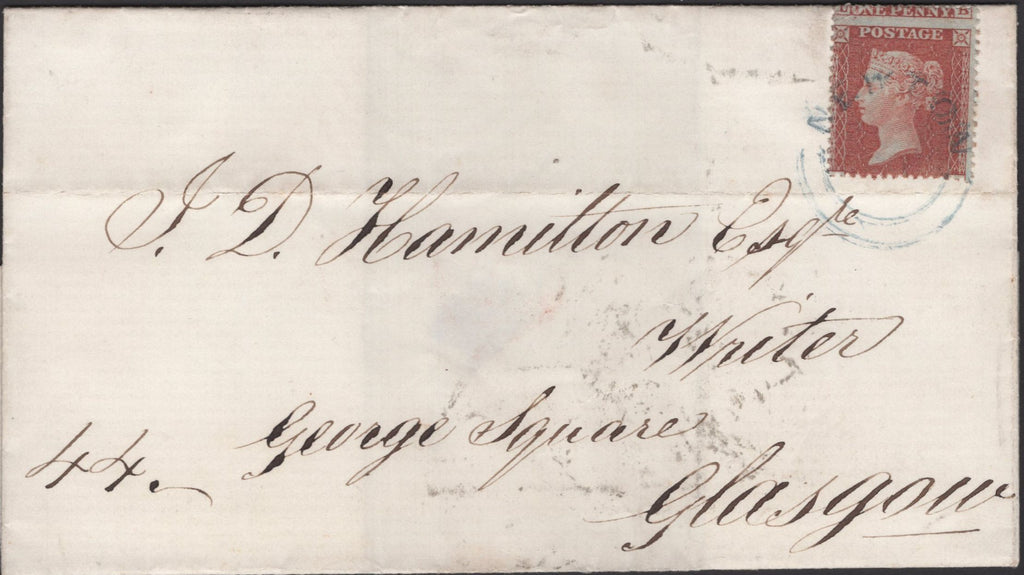 ONE PENNY B
POSTAGE
J. D. Hamilton Esqre
Writer
George Square
44.
Glasgow